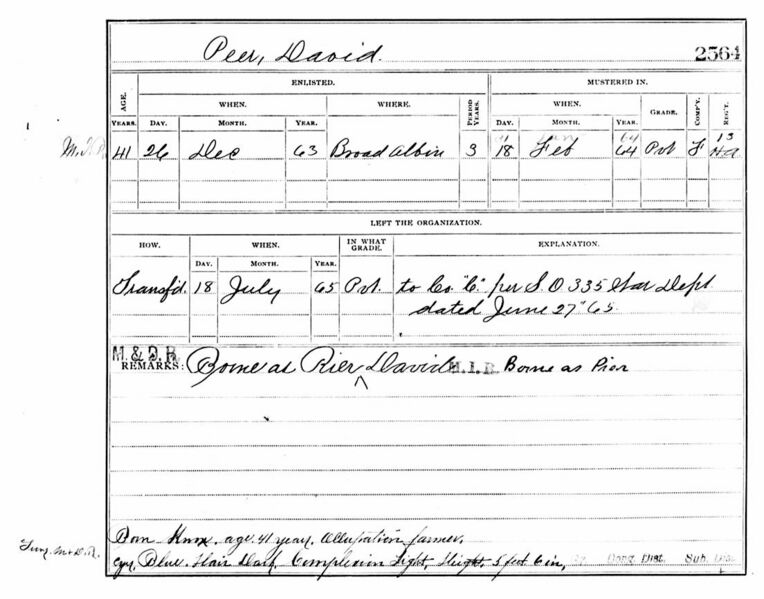 Peer, David. 2564
ENLISTED. MUSTERED IN.
AGE. WHEN. WHERE. PERIOD YEARS. WHEN. GRADE. COMP'Y. REG'T.
YEARS. DAY. MONTH. YEAR. DAY. MONTH. YEAR.
Jan 64 13
41 26 Dec 63 Broad Albin 3 18 Feb 64 Pvt F H.A
LEFT THE ORGANIZATION.
HOW. WHEN. IN WHAT GRADE. EXPLANATION.
DAY. MONTH. YEAR.
Transfd. 18 July 65 Pvt. to Co. "C" per S.O 335 War Dept
dated June 27" 65.
M. & D. R.
REMARKS: Borne as Rier David M.I.R. Borne as Pier
Born Knox, age 41 years, Occupation farmer,
Eyes, Blue. Hair Dark, Complexion Light, Height, 5 feet 6 in, Cong Dist. Sub. Dist.
M. & D. R.